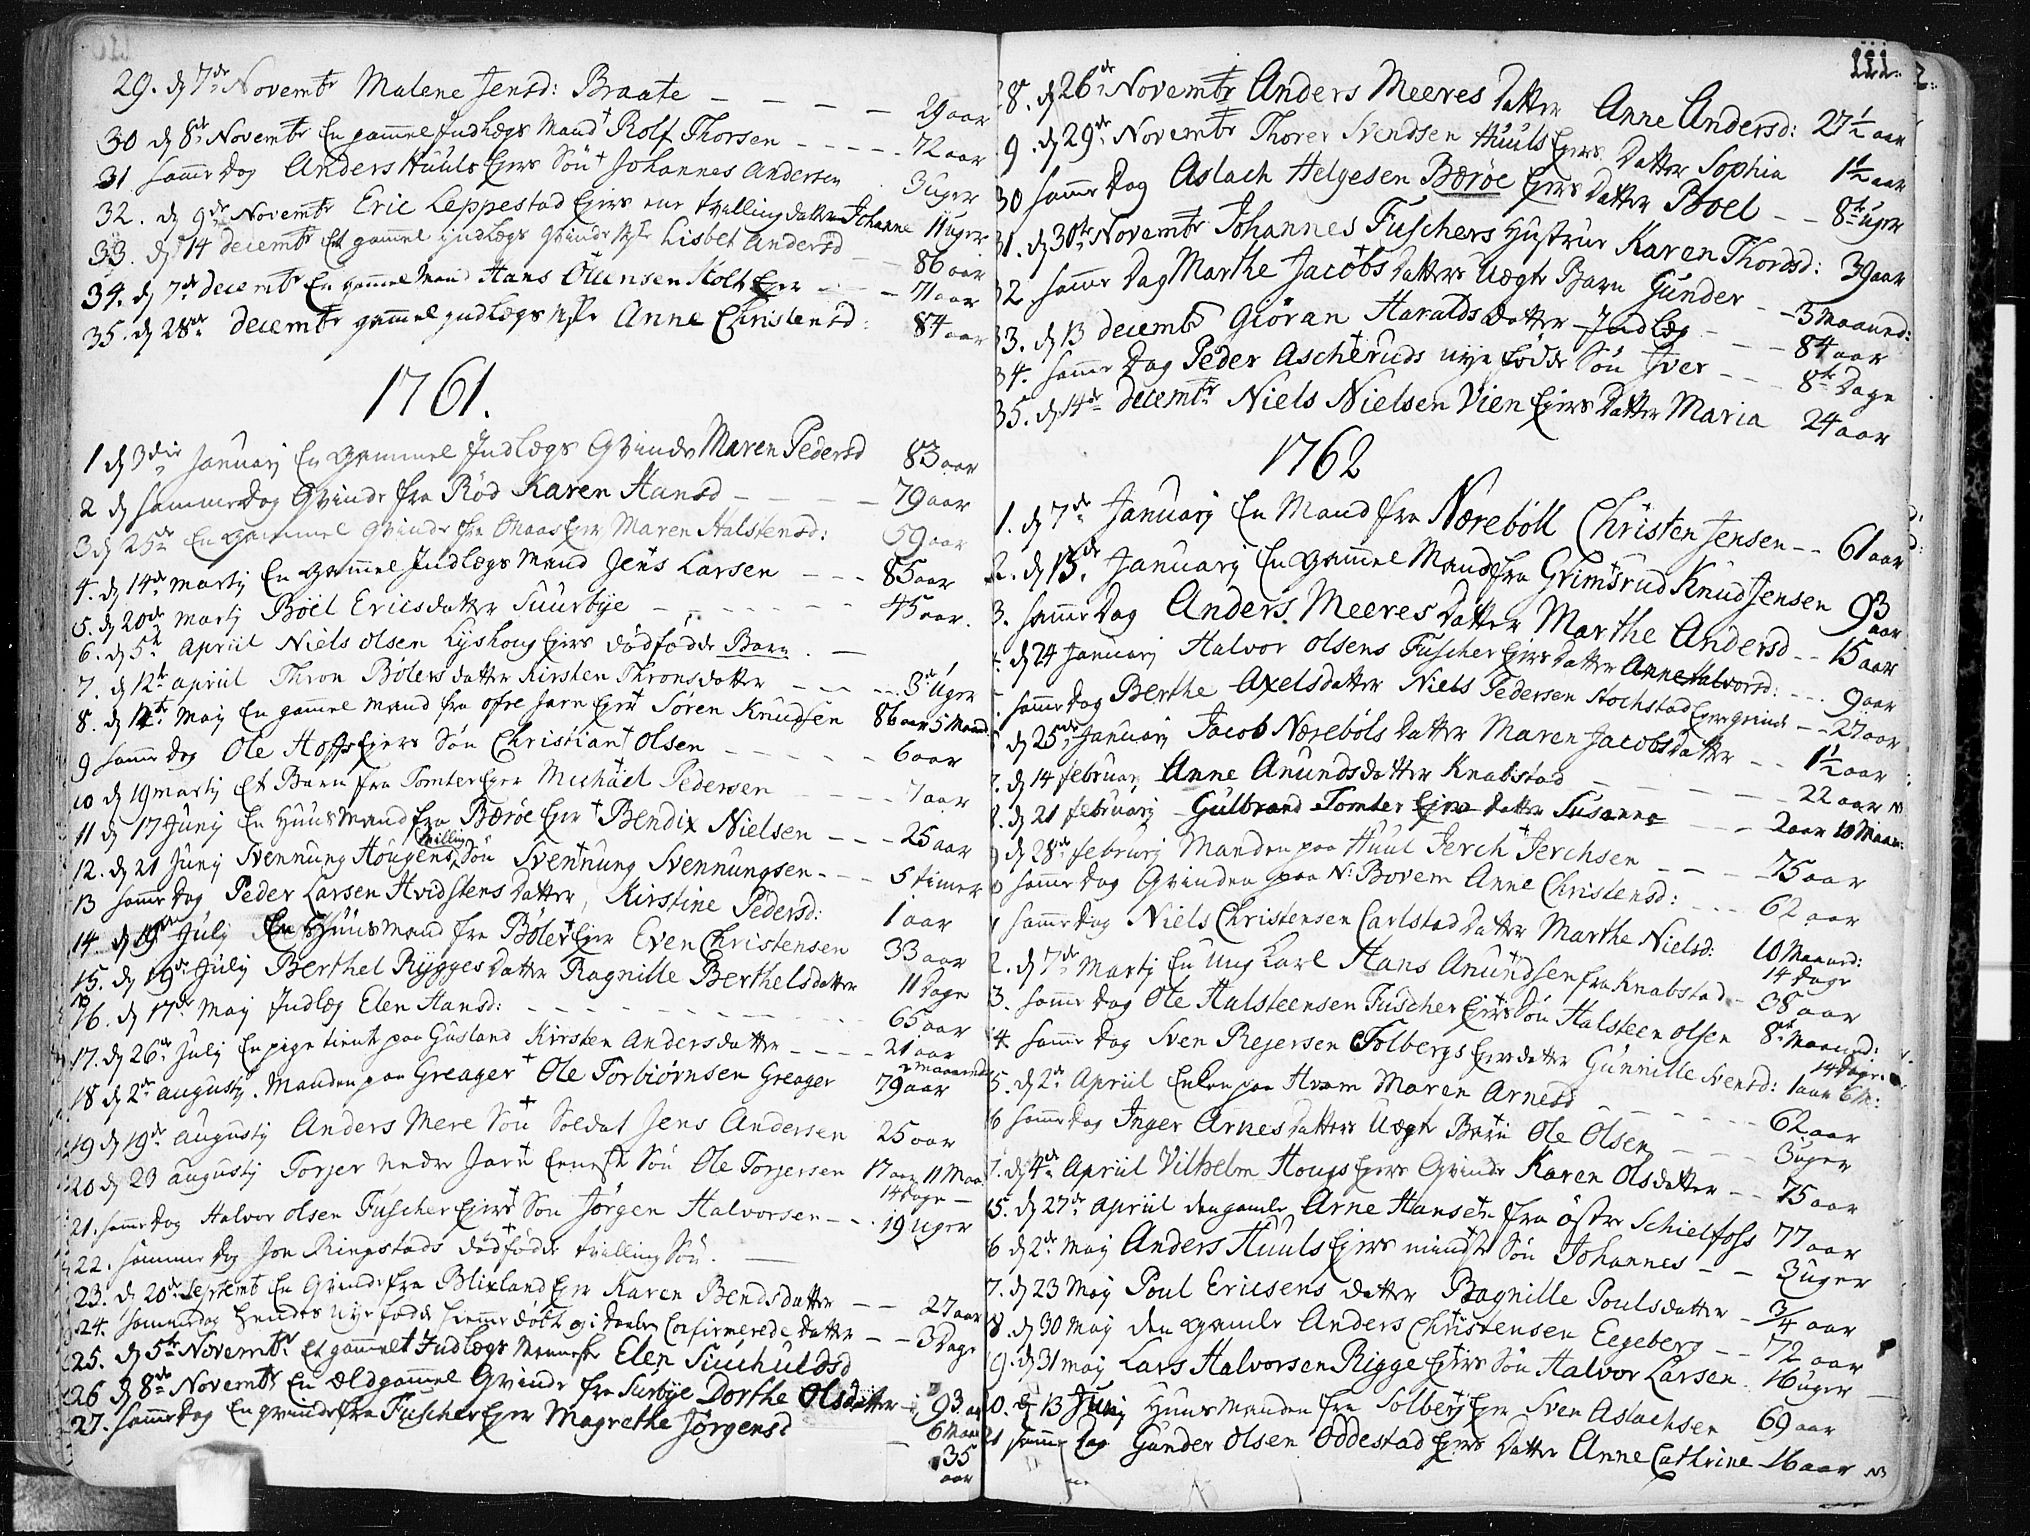 29. d 7de Novembr Malene Jensd: Braate – – – – 29 aar
30 d 8de Novembr En gammel Indlægs Mand Rolf Thorsen – – – – 72 aar
31 samme Dag Anders Huuls Eiers Søn Johannes Andersen 3 uger
32. d 9de Novembr Eric Leppestad Eiers ene tvilling datter Johanne 11 uger
33. d 14 decembr Et gammel indlægs Qvinde Lisbet Andersd – – 86 aar
34. d 7de decembr En gammel Mand Hans Olensen Holt Eyer – – 71 aar
35. d 28de decembr gammel indlægs Anne Christensd: 84 aar
1761.
1 d 3die Januarij En Gammel Indlægs Qvinde Maren Pedersd 83 aar
2 d samme dag Qvinde fra Rød Karen Hansd – – – – 79 aar
3 d 25de En Gammel Qvinde fra Eyer Maren Halstensd: 59 aar
4. d 14de Martij En Gammel Indlægs Mand Jens Larsen – – – 85 aar
5. d 20de Martij Böel Ericsdatter Suurbye – – – – 45 aar.
6. d 5te April Niels Olsen Lyshoug Eiers dödfödde Barn. –
7. d 12te april Thron Bölers datter Kirsten Thronsdatter – – – 3 uger
8. d 12te Maij En gammel Mand fra ofre Jarn Eyer Søren Knudsen 86 aar 5 Maaned
9 samme dag Ole Hoffs Eiers Søn Christian Olsen – – – – 6 aar
10 d 19 martij Et Barn fra Tomter Eyer Michael Pedersen – – – 7 aar
11 d 17 Junij En Huusmand fra Bærøe Eyer Bendix Nielsen – – – 25 aar
12. d 21 Junij Svennung Hougens tvilling Søn Svennung Svennungsen – – – 5 timer
13 samme dag Peder Larsen Hvidstens Datter, Kirstine Pedersd: 1 aar
14 d 19 Julij En Huusmand fra Böler Eyer Even Christensen 33 aar
15. d 19de Julij Berthel Rygges Datter Ragnille Berthelsdatter 11 Dage
16. d 17de Maij Indlæg Elen Hansd: – – – – 65 aar
17. d 26de Julij En pige tient paa Gusland Kirsten Andersdatter – – – – 21 aar
18 d 2de augustij. Manden paa Greager Ole Torbiørnsen Greager 79 aar
19 d 19de augustij Anders Mere Søn Soldat Jens Andersen 25 aar
20 d 23 augustij Torjer nedre Jarn Eeneste Søn Ole Torjersen 17 aar 11 Maa
14 dage –
21. samme dag Halvor Olsen Fuscher Eiers Søn Jörgen Halvorsen – – 19 uger
22. samme dag Jon Ringstads dödfödde tvilling Søn. –
23. d 20de Septemb En Qvinde fra Blixland Eyer Karen Bendsdatter – – 27 aar
24. samme dag hendes nye fødde hiemme döbt og i Confirmerede datter – – 3 Dage
25. d 5te Novembr Et gammelt Indlægs Menneske Elen
26 d 8de Novembr En Ældgammel Qvinde fra Surbye Dorthe Olsdatter – 93 aar
6 Maan
27. samme dag En qvinde fra Fuscher Eyer Magrethe Jörgensd – 35
aar
111.
28. d 26de Novembr Anders Meeres Datter Anne Andersd: 27½ aar
9. d 29de Novembr Thorer Svendsen Huuls Eiers Datter Sophia 1½ aar
30 samme Dag Aslach Helgesen Bærøe Eiers Datter Boel – – 8te uger
31. d 30te Novembr Johannes Fuschers Hustrue Karen Thordsd: 39 aar
32. samme Dag Marthe Jacobsdatters Uægte Barn Gunder – – 3 Maaned:
33. d 13 decembr Giöran Haraldsdatter Indlæg – – – 84 aar
34. samme Dag Peder Ascheruds nye fødde Søn Iver – – – 8te Dage
35. d 14de decembr Niels Nielsen Vien Eiers Datter Maria 24 aar
1762
1. d 7de Januarij En Mand fra Nærebøll Christen Jensen – – 61 aar
2. d 13de Januarij En Gammel Mand fra Grimsrud Knud Jensen 93 aar
3. samme Dag Anders Meeres Datter Marthe Andersd – – 15 aar
d 24 Januarij Halvor Olsens Fuscher Eiers Datter Anne Halvorsd: – – 9 aar
samme dag Berthe Axelsdatter Niels Pedersen Stochstad Eyers qvinde – – 27 aar
d 25de Januarij Jacob Nærebøls Datter Maren Jacobsdatter – – 1½ aar
7. d 14 februarij Anne Anundsdatter Knabstad – – – – 22 aar
8. d 21 februarij Gulbrand Tomter Eyers datter Susanne – – – 2 aar 10 Maan:
9 d 28de februarij Manden paa Huul Ierch Ierchsen – – – 75 aar
samme dag Qvinden paa N: Bovem Anne Christensd: – – – 62 aar
1 samme dag Niels Christensen Carlstad Datter Marthe Nielsd: 10 Maaned:
14 dage
2. d 7de Martij En ung Karl Hans Anundsen fra Knabstad – 38 aar
3. samme dag Ole Halsteensen Fuscher Eiers Søn Halsteen Olsen 8te Maaned:
14 dage
4. samme dag Sven Rejersen Solbergs Eiers datter Gunnille Svensd: 1 aar 6 M:
5. d 2de Apriil Enken paa Hvam Maren Arnesd – – – – 62 aar
6 samme dag Inger Arnesdatters Uægte Barn Ole Olsen – – – 3 uger
7. d 4de Apriil Vilhelm Hougs Eiers Qvinde Karen Olsdatter – – 75 aar
15. d 27de Apriil den gamle Arne Hansen fra östre Schielfoss 77 aar
6 d 2de Maij Anders Huuls Eiers mindste Søn Johannes – – 3 uger
7. d 23 Maij Poul Ericsens datter Ragnille Poulsdatter – ¾ aar
8. d 30 Maij den gamle Anders Christensen Eegeberg – – 72 aar
9. d 31 maij Lars Halvorsen Rigge Eiers Søn Halvor Larsen 16 uger
0. d 13 Junij Huusmanden fra Solberg Eyer Sven Aslachsen 69 aar
21 samme Dag Gunder Olsen Oddestad Eiers Datter Anne Cathrine – 16 aar